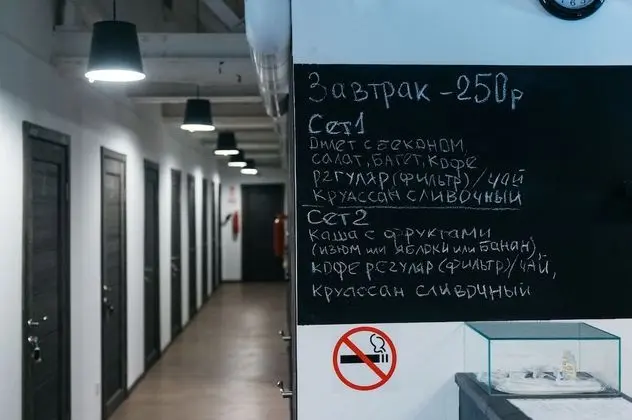 Завтрак - 250р
Сет 1
Омлет с беконом,
салат, багет, кофе
регуляр (фильтр) / чай
круассан сливочный
Сет 2
Каша с фруктами
(изюм или яблоки или банан),
кофе регуляр (фильтр) / чай,
круассан сливочный